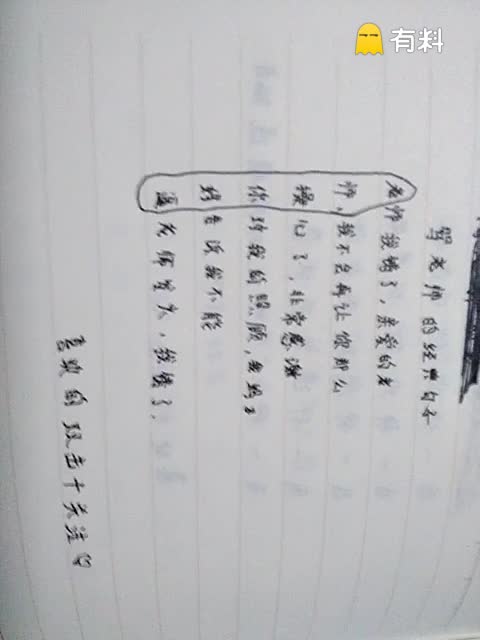 有料
骂老师的经典句子
老师我错了，亲爱的老
师，我不会再让你那么
操心了，非常感谢
你对我的照顾，我妈
妈告诉我不能
逼老师生气，我错了，
喜欢的双击十关注